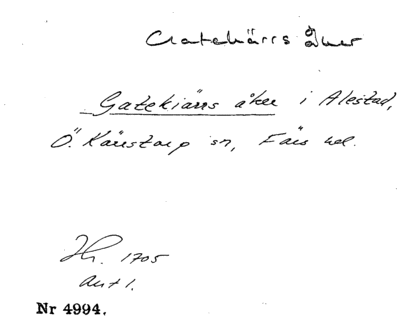 Gatekärrs åker
Gatekiärrs åker i Alestad,
Ö. Kärrstorp sn, Färs hd.
Jh. 1705
Ant 1.
Nr 4994.